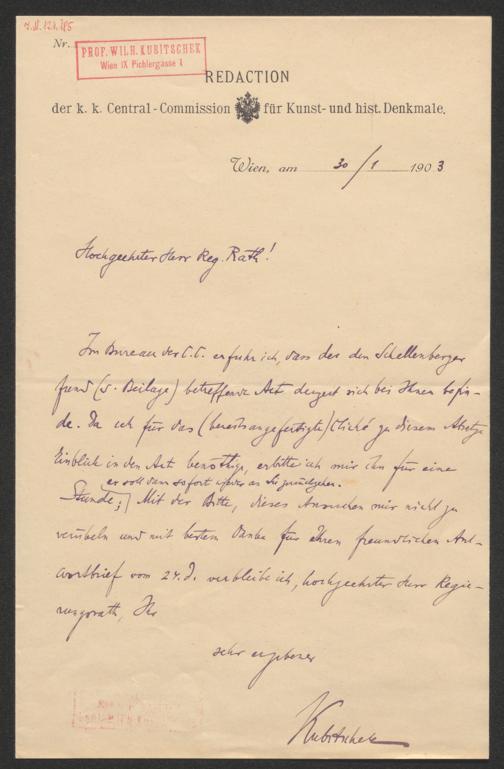 Nr.
PROF. WILH. KUBITSCHEK
Wien IX Pichlergasse 1
REDACTION
der k. k. Central-Commission für Kunst- und hist. Denkmale.
Wien, am 30/1 1903
Hochgeehrter Herr Reg. Rath!
Im Bureau der C.C. erfuhr ich, dass der den Schellenberger
fund (s. Beilage) betreffende Act derzeit sich bei Ihnen befin-
de. Da ich für das (bereits angefertigte) Cliché zu diesem
Einblick in den Act benöthige, erbitte ich mir ihn für eine
er soll dann sofort wieder an Sie zurückgehen.
Stunde; Mit der Bitte, dieses Ansuchen mir nicht zu
verübeln und mit bestem Danke für Ihren freundlichen Ant-
wortbrief vom 24. d. verbleibe ich, hochgeehrter Herr Regie-
rungsrath, Ihr
sehr ergebener
Kubitschek